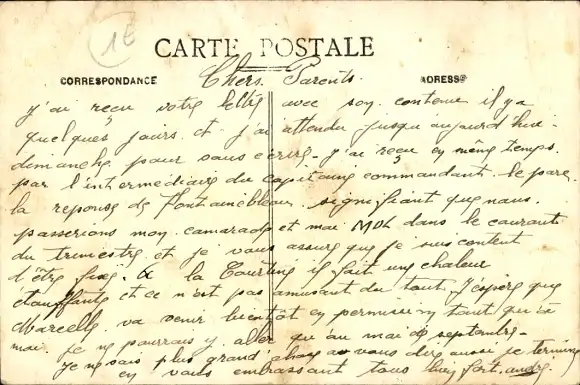 1€
CARTE POSTALE
CORRESPONDANCE
ADRESSE
Chers Parents.
j'ai reçu votre lettre avec son contenu il y a
quelques jours et j'ai attendu jusqu'aujourd'hui
dimanche pour vous écrire. j'ai reçu en même temps
par l'intermédiaire du capitaine commandant le parc
la reponse de Fontainebleau signifiant que nous
passerions mon camarade et moi MDL dans le courant
du trimestre et je vous assure que je suis content
d'être fixé. A la Courtine il fait une chaleur
étouffante et ce n'est pas amusant du tout. J'espère que
Marcelle va venir bientôt en permission tant qu'à
moi je ne pourrais y aller qu'au mois de septembre.
Je ne sais plus grand chose à vous dire aussi je termine
en vous embrassant tous bien fort. andré